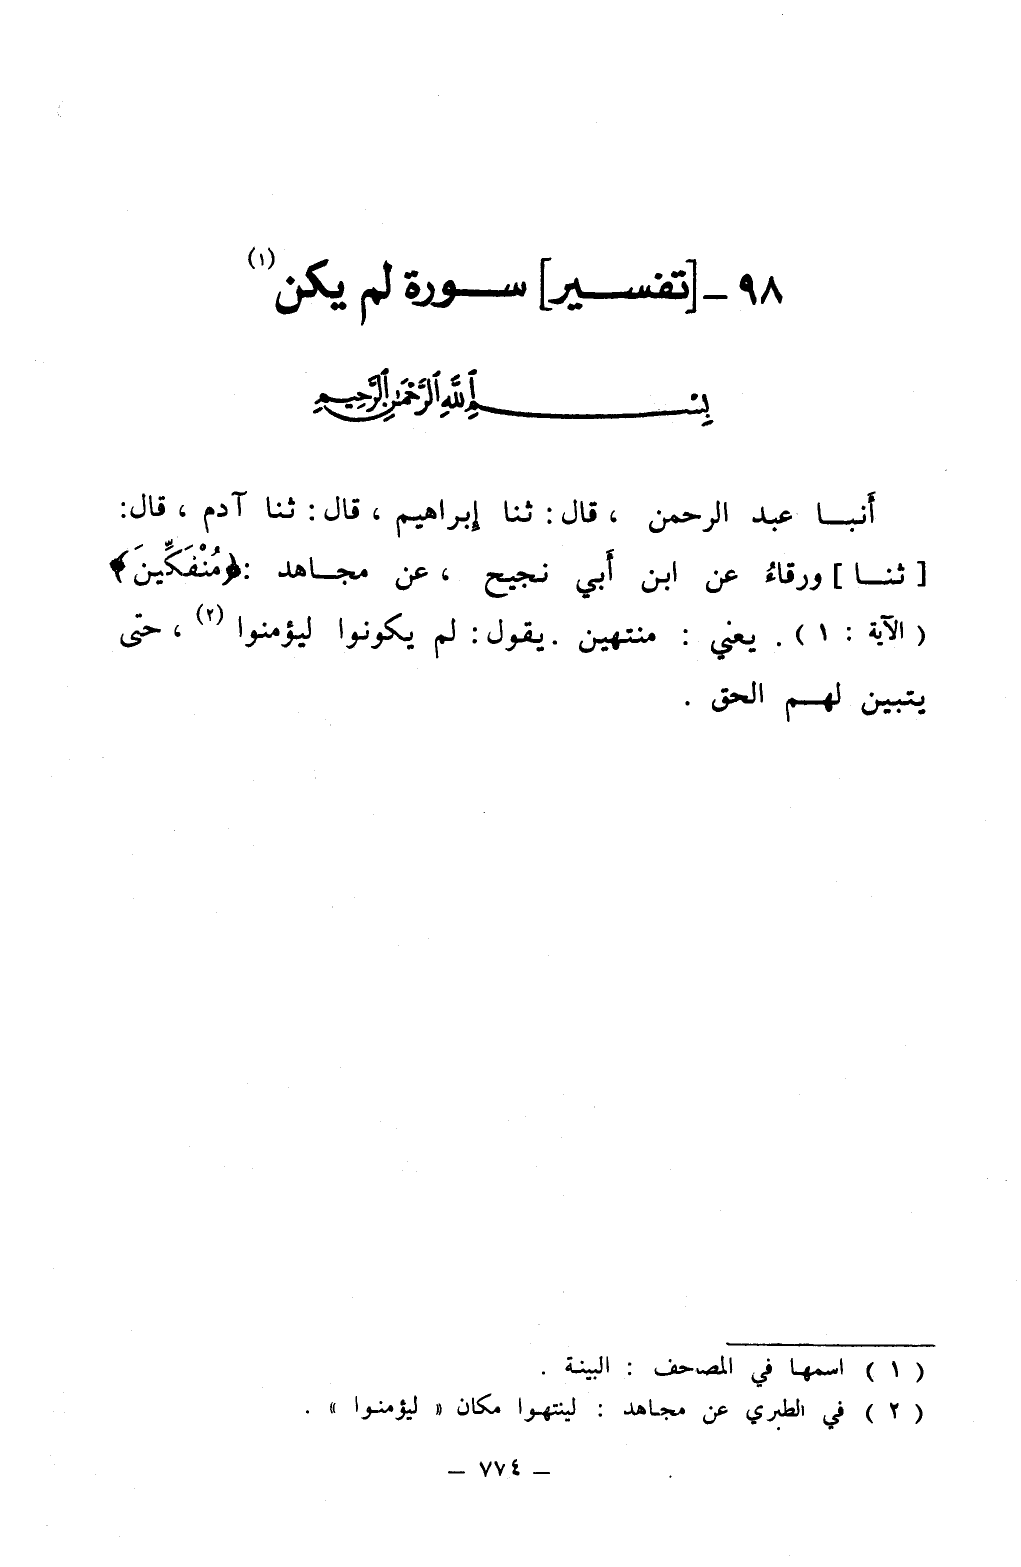 ٩٨ – [تفسير] سورة لم يكن (١)
بِسْمِ ٱللَّهِ ٱلرَّحْمَٰنِ ٱلرَّحِيمِ
أنبا عبد الرحمن ، قال: ثنا إبراهيم ، قال: ثنا آدم ، قال:
[ ثنا ] ورقاءُ عن ابن أبي نجيح ، عن مجاهد : ﴿مُنْفَكِّينَ﴾
( الآية : ١ ) . يعني : منتهين . يقول: لم يكونوا ليؤمنوا (٢) ، حتى
يتبين لهم الحق .
( ١ ) اسمها في المصحف : البينة .
( ٢ ) في الطبري عن مجاهد : لينتهوا مكان « ليؤمنوا » .
– ٧٧٤ –